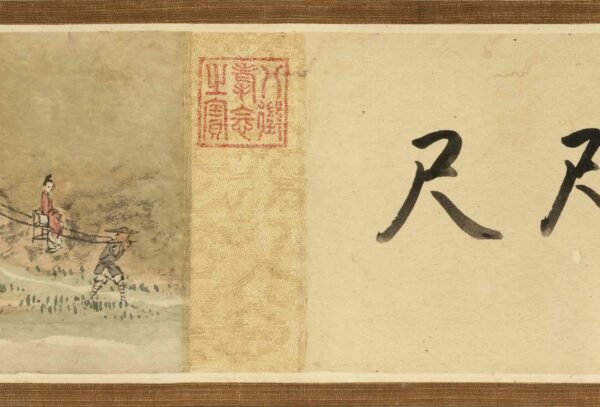 尺
八徵
耄念
之寶